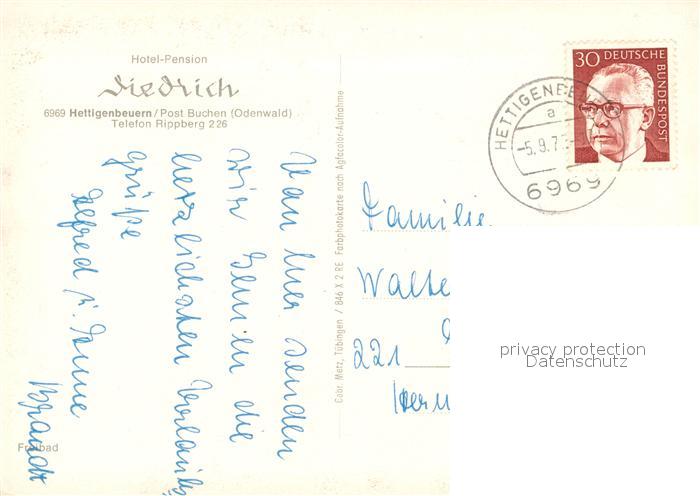 Hotel-Pension
Diedrich
6969 Hettigenbeuern/Post Buchen (Odenwald)
Telefon Rippberg 226
Von hier senden
wir Ihnen die
herzlichsten Urlaubs
grüße
Alfred u. Anne
Brandt
Freibad
Gebr. Metz, Tübingen / 846 X 2 RE Farbphotokarte nach Agfacolor-Aufnahme
30 DEUTSCHE
BUNDESPOST
HETTIGENBE
a
-5.9.7
6969
Familie
Walte
221
privacy protection
Datenschutz